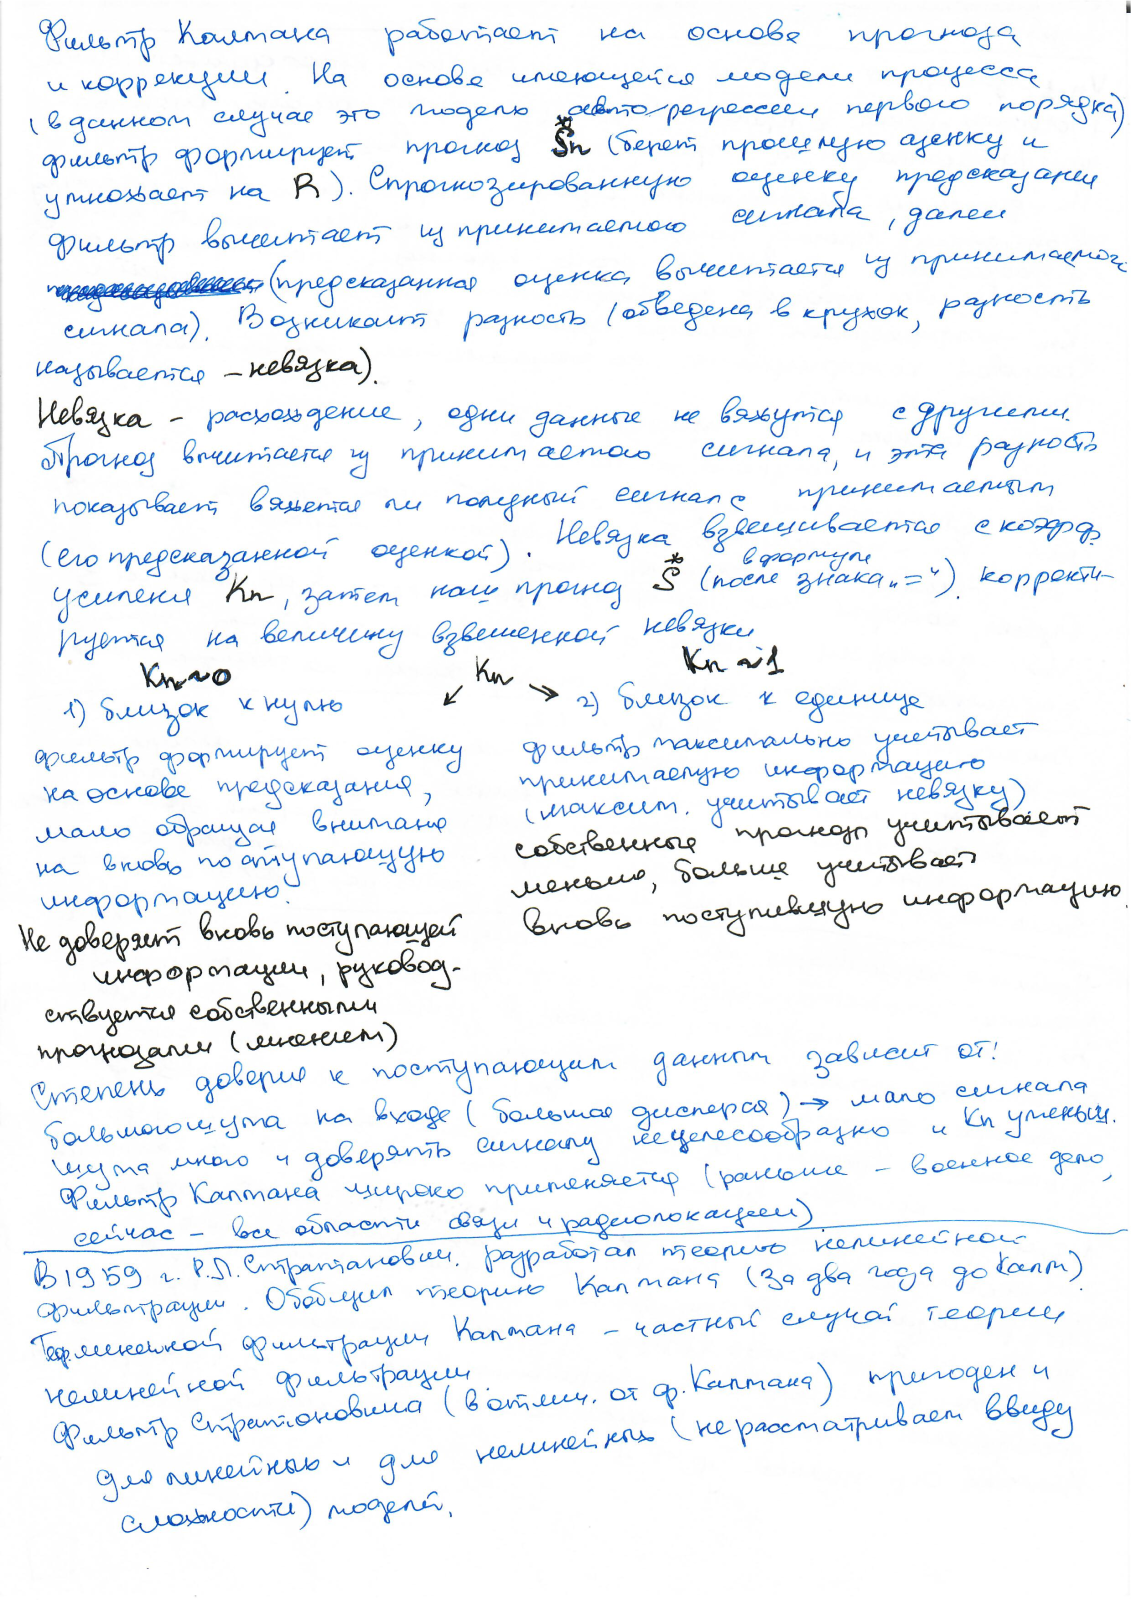 Фильтр Калмана работает на основе прогноза
и коррекции. На основе имеющейся модели процесса
(в данном случае это модель авторегрессии первого порядка)
фильтр формирует прогноз S*n (берет прошлую оценку и
умножает на R). Спрогнозированную оценку предсказания
фильтр вычитает из принимаемого сигнала, далее
(предсказанная оценка вычитается из принимаемого
сигнала). Возникает разность (обведена в кружок, разность
называется – невязка).
Невязка – расхождение, одни данные не вяжутся с другими.
Прогноз вычитается из принимаемого сигнала, и эта разность
показывает вяжется ли полезный сигнал с принимаемым
(его предсказанной оценкой). Невязка взвешивается с коэфф.
усиления Kn, затем наш прогноз S* (после знака „=“) корректи-
в формуле
руется на величину взвешенной невязки
Kn
Kn ~ 0
1) близок к нулю
фильтр формирует оценку
на основе предсказания,
мало обращая внимание
на вновь поступающую
информацию.
Не доверяет вновь поступающей
информации, руковод-
ствуется собственными
прогнозами (мнением)
Kn ~ 1
2) близок к единице
фильтр максимально учитывает
принимаемую информацию
(максим. учитывает невязку)
собственные прогнозы учитывает
меньше, больше учитывает
вновь поступившую информацию.
Степень доверия к поступающим данным зависит от:
большого шума на входе (большая дисперсия) → мало сигнала
шума много и доверять сигналу нецелесообразно и Kn уменьш.
Фильтр Калмана широко применяется (раньше – военное дело,
сейчас – все области связи и радиолокации)
В 1959 г. Р.Л. Стратанович. разработал теорию нелинейной
фильтрации. Обобщил теорию Калмана (за два года до Калм)
линейной фильтрации Калмана – частный случай теории
нелинейной фильтрации
Фильтр Стратоновича (в отлич. от ф. Калмана) пригоден и
для линейных и для нелинейных (не рассматриваем ввиду
сложности) моделей.